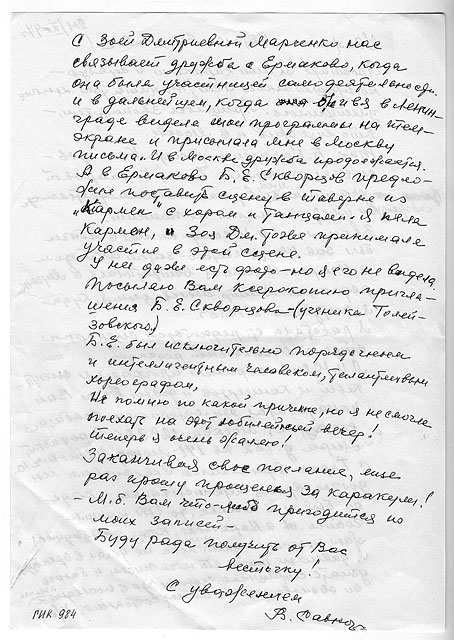 С Зоей Дмитриевной Марченко нас
связывает дружба с Ермаково, когда
она была участницей самодеятельности.
и в дальнейшем, когда живя в Ленин-
граде видела мои программы на теле-
экране и присылала мне в Москву
письма. И в Москве дружба продолжается.
А в Ермаково Б. Е. Скворцов предло-
жил поставить сцену в таверне из
"Кармен" с хором и танцами. Я пела
Кармен, и Зоя Дм. тоже принимала
участие в этой сцене.
У неё даже есть фото – но я его не видела.
Посылаю Вам ксерокопию пригла-
шения Б. Е. Скворцова – (ученика Голей-
зовского.)
Б. Е. был исключительно порядочным
и интеллигентным человеком, талантливым
хореографом,
Не помню по какой причине, но я не смогла
поехать на этот юбилейный вечер!
Теперь я очень жалею!
Заканчивая свое послание, еще
раз прошу прощения за каракули!
– М. б. Вам что-либо пригодится из
моих записей –
Буду рада получить от Вас
весточку!
С уважением
В.
ГИК 984